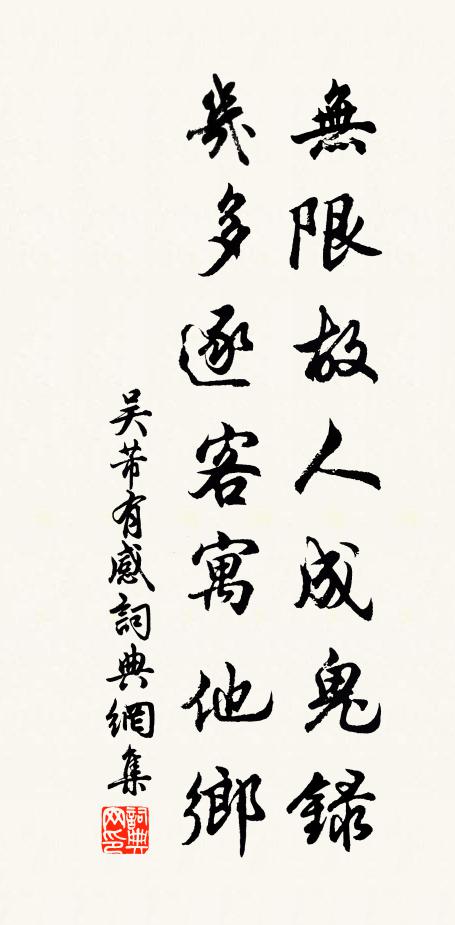 無限故人成鬼録
幾多逐客寓他鄉
吴芾有感詞典網集
詞典网印